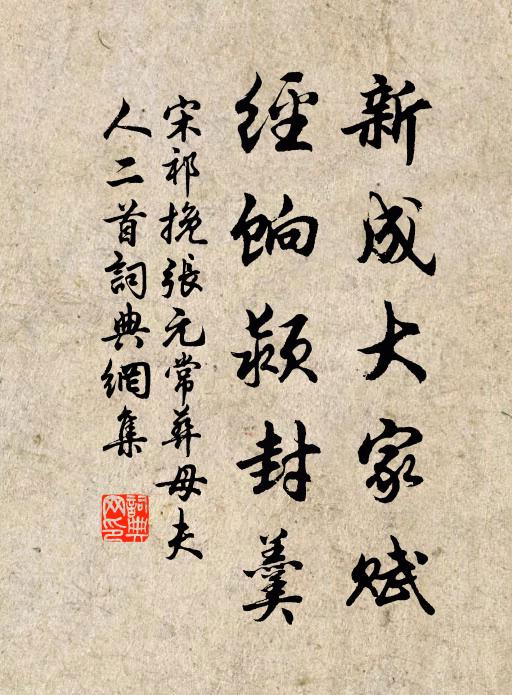 新成大家賦
經餉潁封羹
宋祁挽張元常葬母夫
人二首詞典網集
詞典
网印